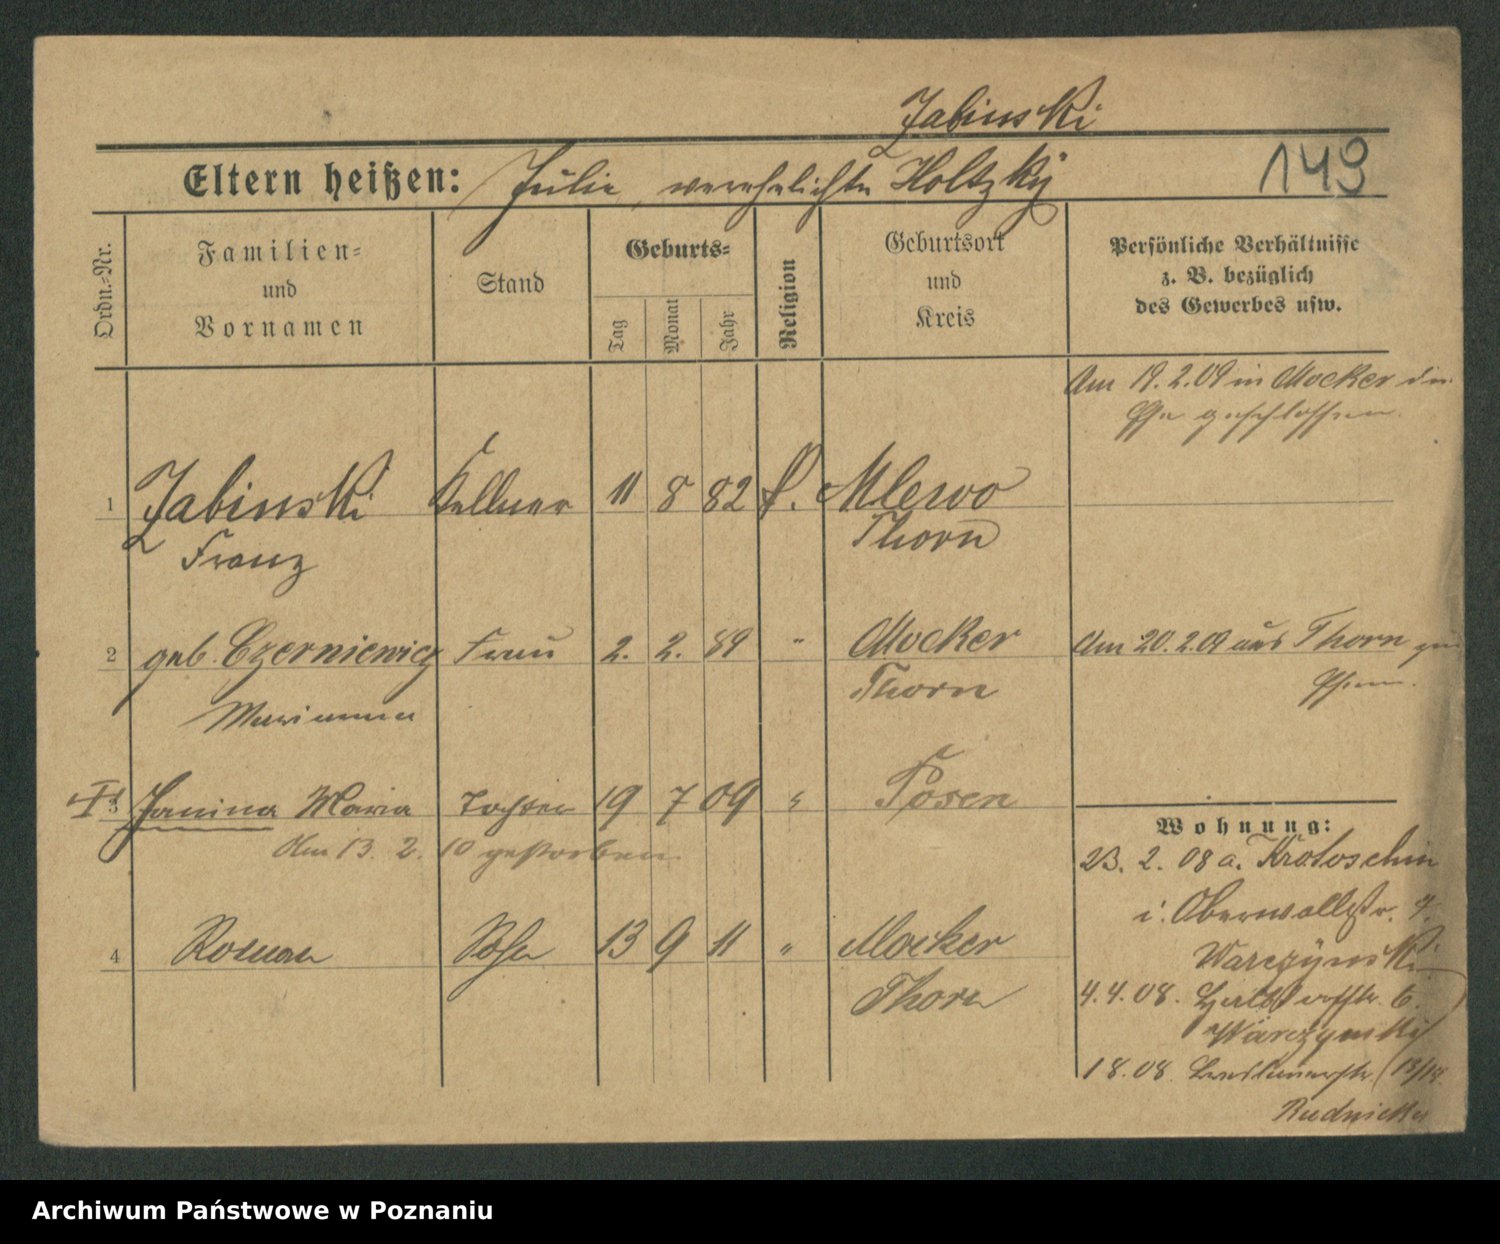 Zabinski
Eltern heißen: Julie, verehelichte Holtzky
149
Ordn.-Nr.
Familien-
und
Vornamen
Stand
Geburts-
Tag
Monat
Jahr
Religion
Geburtsort
und
Kreis
Persönliche Verhältnisse
z. B. bezüglich
des Gewerbes usw.
Am 19. 2. 09 in Mocker die
Ehe geschlossen.
1 Zabinski Kellner 11 8 82 k. Mlewo
Franz Thorn
2 geb. Czerniewicz Frau 2. 2. 89 " Mocker Am 20. 2. 09 aus Thorn zum
Marianna Thorn Ehem.
3 Janina Maria Tochter 19 7 09 " Posen
Am 13. 2. 10 gestorben.
Wohnung:
23. 2. 08 a. Krotoschin
i. Oberwallstr. 7.
4 Roman Sohn 13 9 11 " Mocker
Thorn
Warczynski
4. 4. 08. 6.
Warczynski
1 8. 08 13/14
Rudnicki
Archiwum Państwowe w Poznaniu